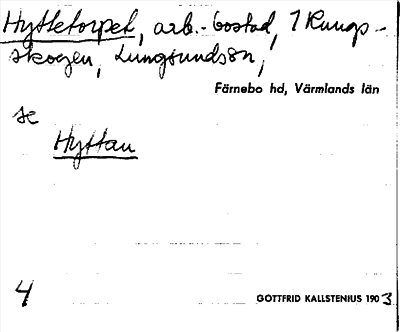 Hyttetorpet, arb.-bostad, 1 Kungs-
skogen, Lungsundsön,
Färnebo hd, Värmlands län
se
Hyttan
4
GOTTFRID KALLSTENIUS 1903